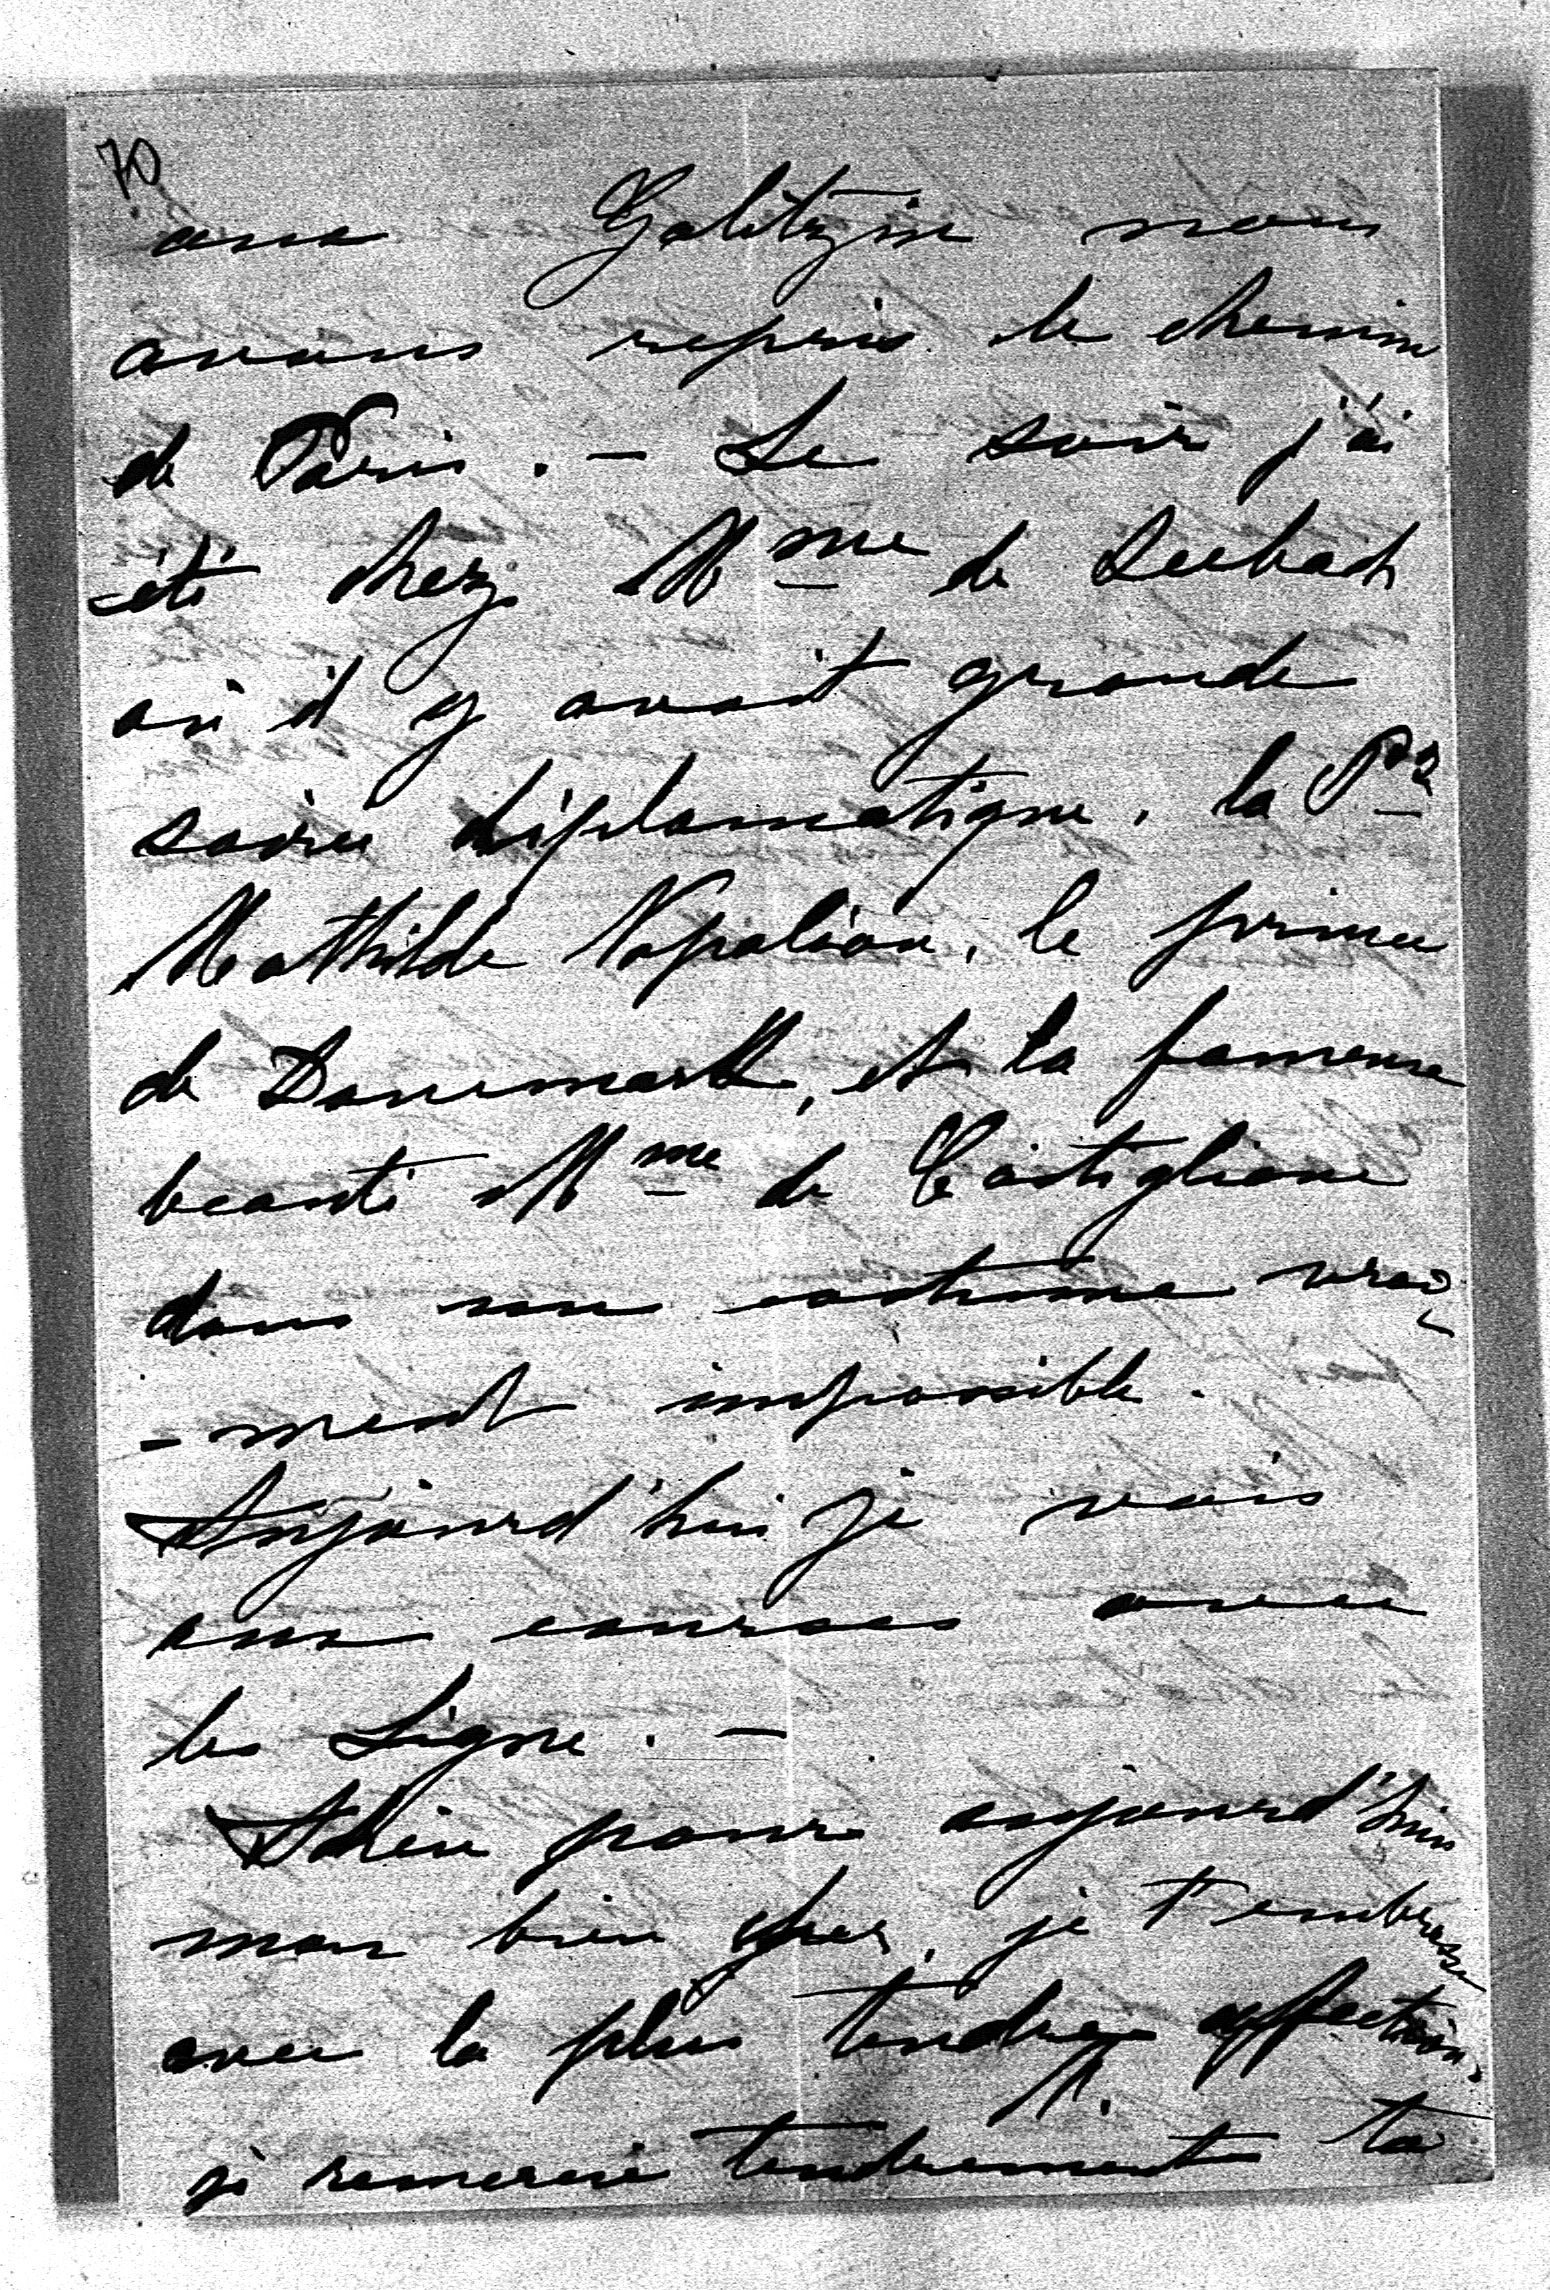 70
aux Galitzin nous
avons repris le chemin
de Paris. — Le soir j'ai
été chez Mme de Seebach
où il y avait grande
soirée diplomatique, la Psse
Mathilde Napoléon, le prince
de Danemark, et la fameuse
beauté Mme de Castiglione
dans son costume vrai-
-ment impossible.
Aujourd'hui je vais
aux courses avec
les Ligne. —
Adieu pour aujourd'hui
mon bien cher, je t'embrasse
avec la plus tendre affection.
M.
je remercie tendrement ta